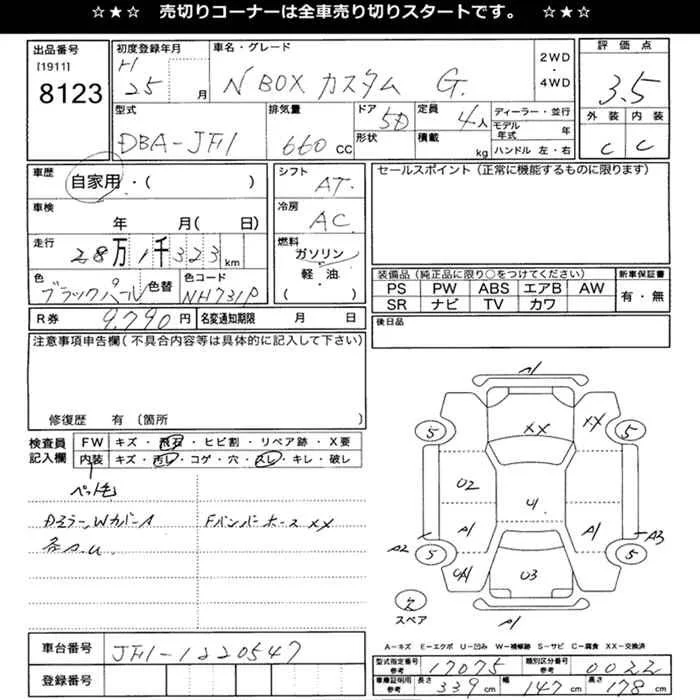 ☆★☆ 売切りコーナーは全車売り切りスタートです。 ☆★☆
出品番号
[1911]
8123
初度登録年月
H
25 月
車名・グレード
N BOX カスタム G.
2WD
・
4WD
評価点
3.5
外装 内装
C C
型式
DBA-JF1
排気量
660 CC
ドア
5D
形状
定員
4人
積載
kg
ディーラー・並行
モデル年式 年
ハンドル 左・右
車歴
自家用・( )
車検
年 月( 日)
走行
28万1千323 km
色
ブラックパール
色替
色コード
NH731P
シフト
AT.
冷房
AC
燃料
ガソリン
・
軽・油
( )
セールスポイント (正常に機能するものに限ります)
装備品 (純正品に限り○をつけてください)
PS PW ABS エアB AW
SR ナビ TV カワ
新車保証書
有・無
後日品
R券 9,790円
名変通知期限 月 日
注意事項申告欄(不具合内容等は具体的に記入して下さい)
修復歴 有 〔箇所 〕
検査員
記入欄
FW キズ・飛石・ヒビ割・リペア跡・X要
内装 キズ・汚レ・コゲ・穴・スレ・キレ・破レ
ペット毛
Dミラー、WカバーA
Fバンパーホース XX
各A.U
A1
XX
XX
5
5
02
U1
A1
A1
A2
A3
5
5
03
A1
スペア
A-キズ E-エクボ U-凹み W-補修跡 S-サビ C-腐食 XX-交換済
車台番号 JF1-1220547
登録番号
型式指定番号
参考
17075
類別区分番号
参考
0022
車庫証明用
参考
長さ 339 cm
幅 147 cm
高さ 178 cm